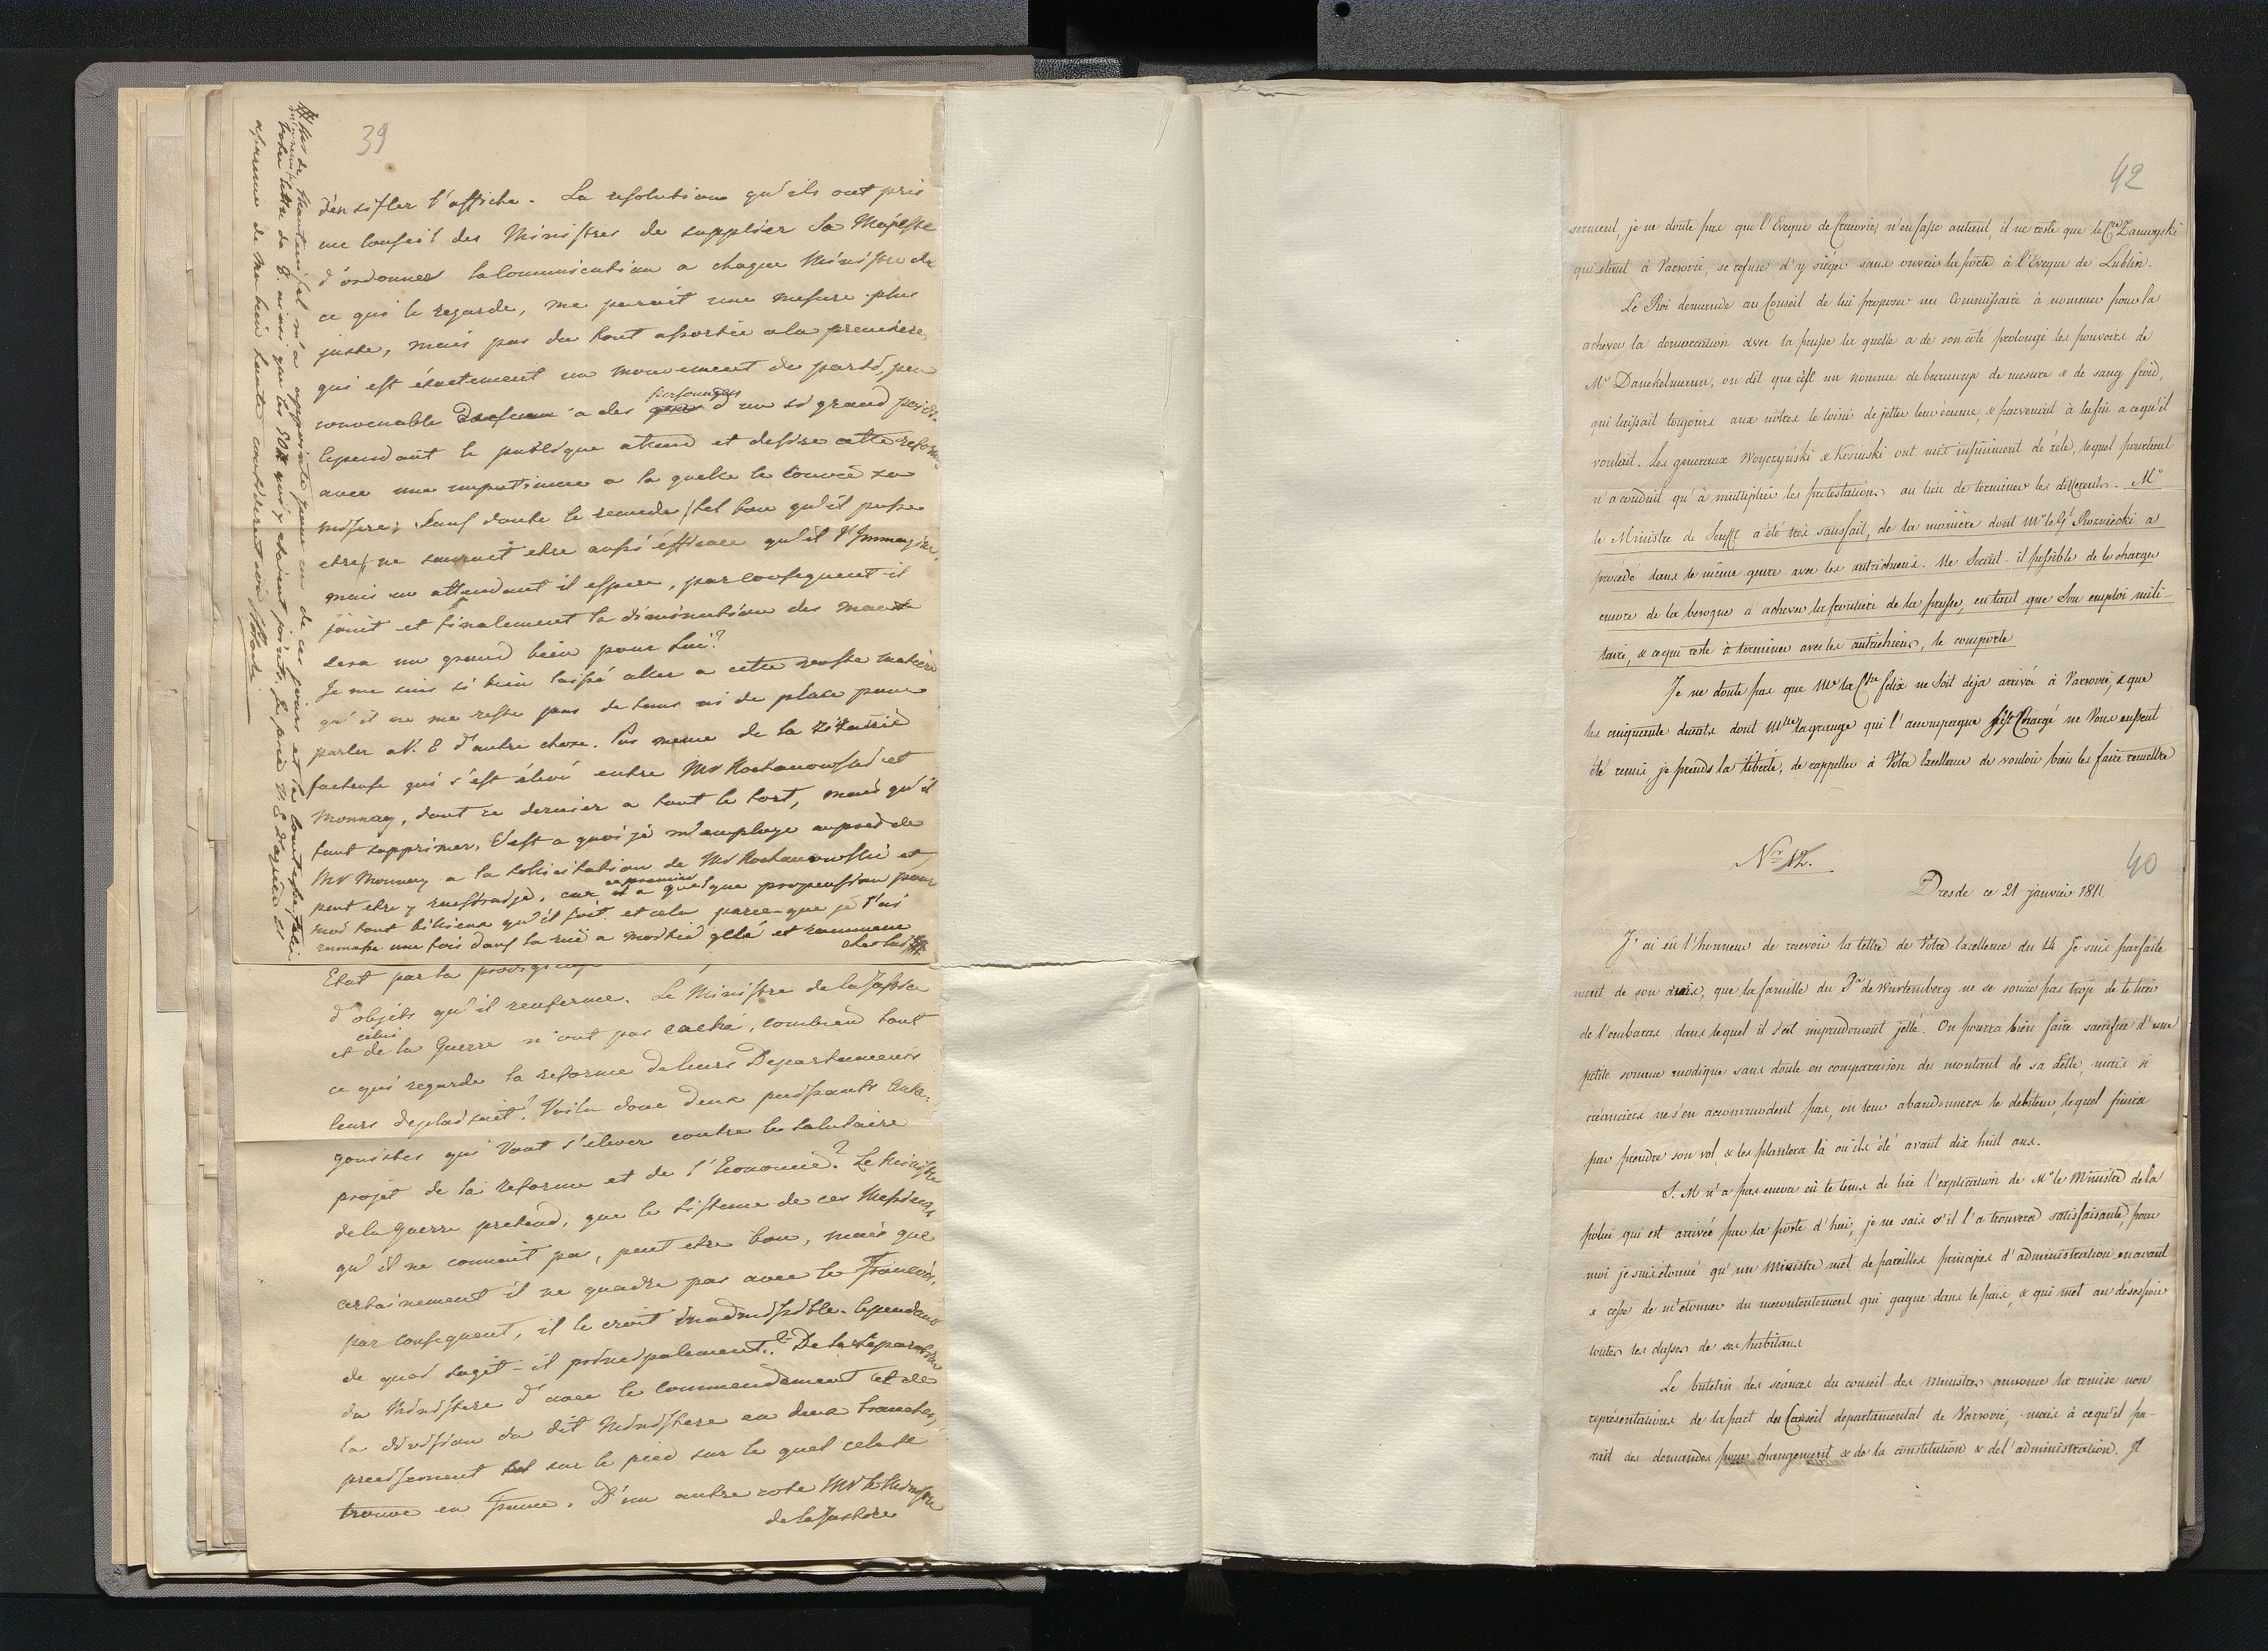 39
d'en sifler l'affiche. La resolution qu'ils ont pris
au Conseil des Ministres de supplier Sa Majesté
d'ordonner la Communication a chaque Ministre de
ce qui le regarde, me parait une mesure plus
juste, mais pas du tout assortie a la premiere,
qui est éxactement un mouvement de parti, peu
convenable a des personnages d'un si grand poids.
Cependant le publique attend et desire cette reforme
avec une impatience a la quelle le convié sa
misere; Sans doute le remede /tel bon qu'il puisse
etre/ ne saurait etre aussi éfficace qu'il s'Immagine,
mais en attendant il espere, par consequent il
jouit et finalement la diminution des maux
sera un grand bien pour Lui?
Je me suis si bien laissé aller a cette vaste matiere
qu'il ne me reste pas de tems ni de place pour
parler a V. E d'autre chose. Pas meme de la
facheuse qui s'est élevé entre Mr Kochanowski et
Monnay, dont ce dernier a tout le tort, mais qu'il
faut supprimer, C'est a quoi je m'employe auprès de
Mr Monnay a la sollicitation de Mr Kochanowski et
peut etre y reussirai-je, car ce premier a quelque propension pour
moi tout bilieux qu'il soit. et cela parce-que je l'ai
ramassé une fois dans la rue a moitié gelé et rammené
chez lui
Etat par la
d'objets qu'il renferme. Le Ministre de la Justice
et celui de la Guerre n'ont pas caché, combien tout
ce qui regarde la reforme de leurs Departements
leurs deplaisait? Voila donc deux puissants Anta-
gonistes qui Vont s'elever contre le salutaire
projet de la reforme et de l'Economie? Le Ministre
de la Guerre pretend, que le Sisteme de ces Messieurs
qu'il ne connait pas, peut etre bon, mais que
certainement il ne quadre pas avec le Francois,
par consequent, il le croit Inadmissible. Cependant
de quoi sagit-il principalement? De la Separation
du Ministere d'avec le Commendement et de
la division du dit Ministere en deux branches,
precisement sur le pied sur le quel cela se
trouve en France. D'un autre coté Mr le Ministre
de la Justice
42
serment, je ne doute pas que l'Eveque de Cracovie, n'en fasse autant, il ne reste que le Cte Zamoyski
qui etant à Varsovie, se refuse d'y sièger sans ouvrir la porte à l'Eveque de Lublin.
Le Roi demande au Conseil de lui proposer un Commissaire à nommer pour la
achever la demarcation avec la prusse la quelle a de son coté prolongé les pouvoirs de
Mr Danckelmann, on dit que c'est un homme de beaucoup de mesure & de sang froid,
qui laissait toujours aux nôtres le loisir de jetter leur écume, & parvenait à la fin a ce qu'il
voulait. Les generaux Woyczyński & Kosinski ont mis infiniment de zèle, lequel pourtant
n'a conduit qu'à multiplier les protestations au lieu de terminer les differents. Mr
le Ministre de Senfft a été très satisfait, de la manière dont Mr le Gl Rozniecki a
procédé dans le même genre avec les autrichiens. Ne Serait-il possible de le charger
encore de la besogne d'achever la frontière de la prusse, entant que Son emploi mili-
taire, & ce qui reste à terminer avec les autrichiens, le comporte
Je ne doute pas que Me la Ctsse felix ne Soit deja arrivée à Varsovie, & que
les cinquante ducats dont Mlle lagrange qui l'accompagne s'est Chargé ne Vous eussent
été remis, je prends la liberté, de rappeller à Votre Excellence de vouloir bien les faire remettre
Nr 12.
40
Dresde ce 21 janvier 1811
J'ai eü l'honneur de recevoir la lettre de Votre Excellence du 14 Je suis parfaite
ment de son avis, que la famille du Pce de Wurtemberg ne se soucie pas trop de le tirer
de l'embaras dans lequel il s'est imprudement jetté. On pourra bien faire sacrifice d'une
petite somme modique sans doute en comparaison du montant de sa dette, mais si
créanciers ne s'en accommodent pas, on leur abandonnera le debiteur, lequel finira
par prendre son vol, & les plantera là où ils été avant dix huit ans.
S. M n'a pas encore eü le tems de lire l'explication de Mr le Ministre de la
police qui est arrivée par la poste d'hui, je ne sais s'il l'a trouvera satisfaisante, pour
moi je suis étonné qu'un Ministre met de pareilles principes d'administration en avant
& cesse de m'etonner du mecontentement qui gagne dans le païs, & qui met au désespoir
toutes les classes de ses habitans
Le buletin des séances du conseil des Ministres annonce la remise non
représentations de la part du Conseil departamental de Varsovie, mais à ce qu'il pa-
rait des demandes pour changement & de la constitution & de l'administration. Il